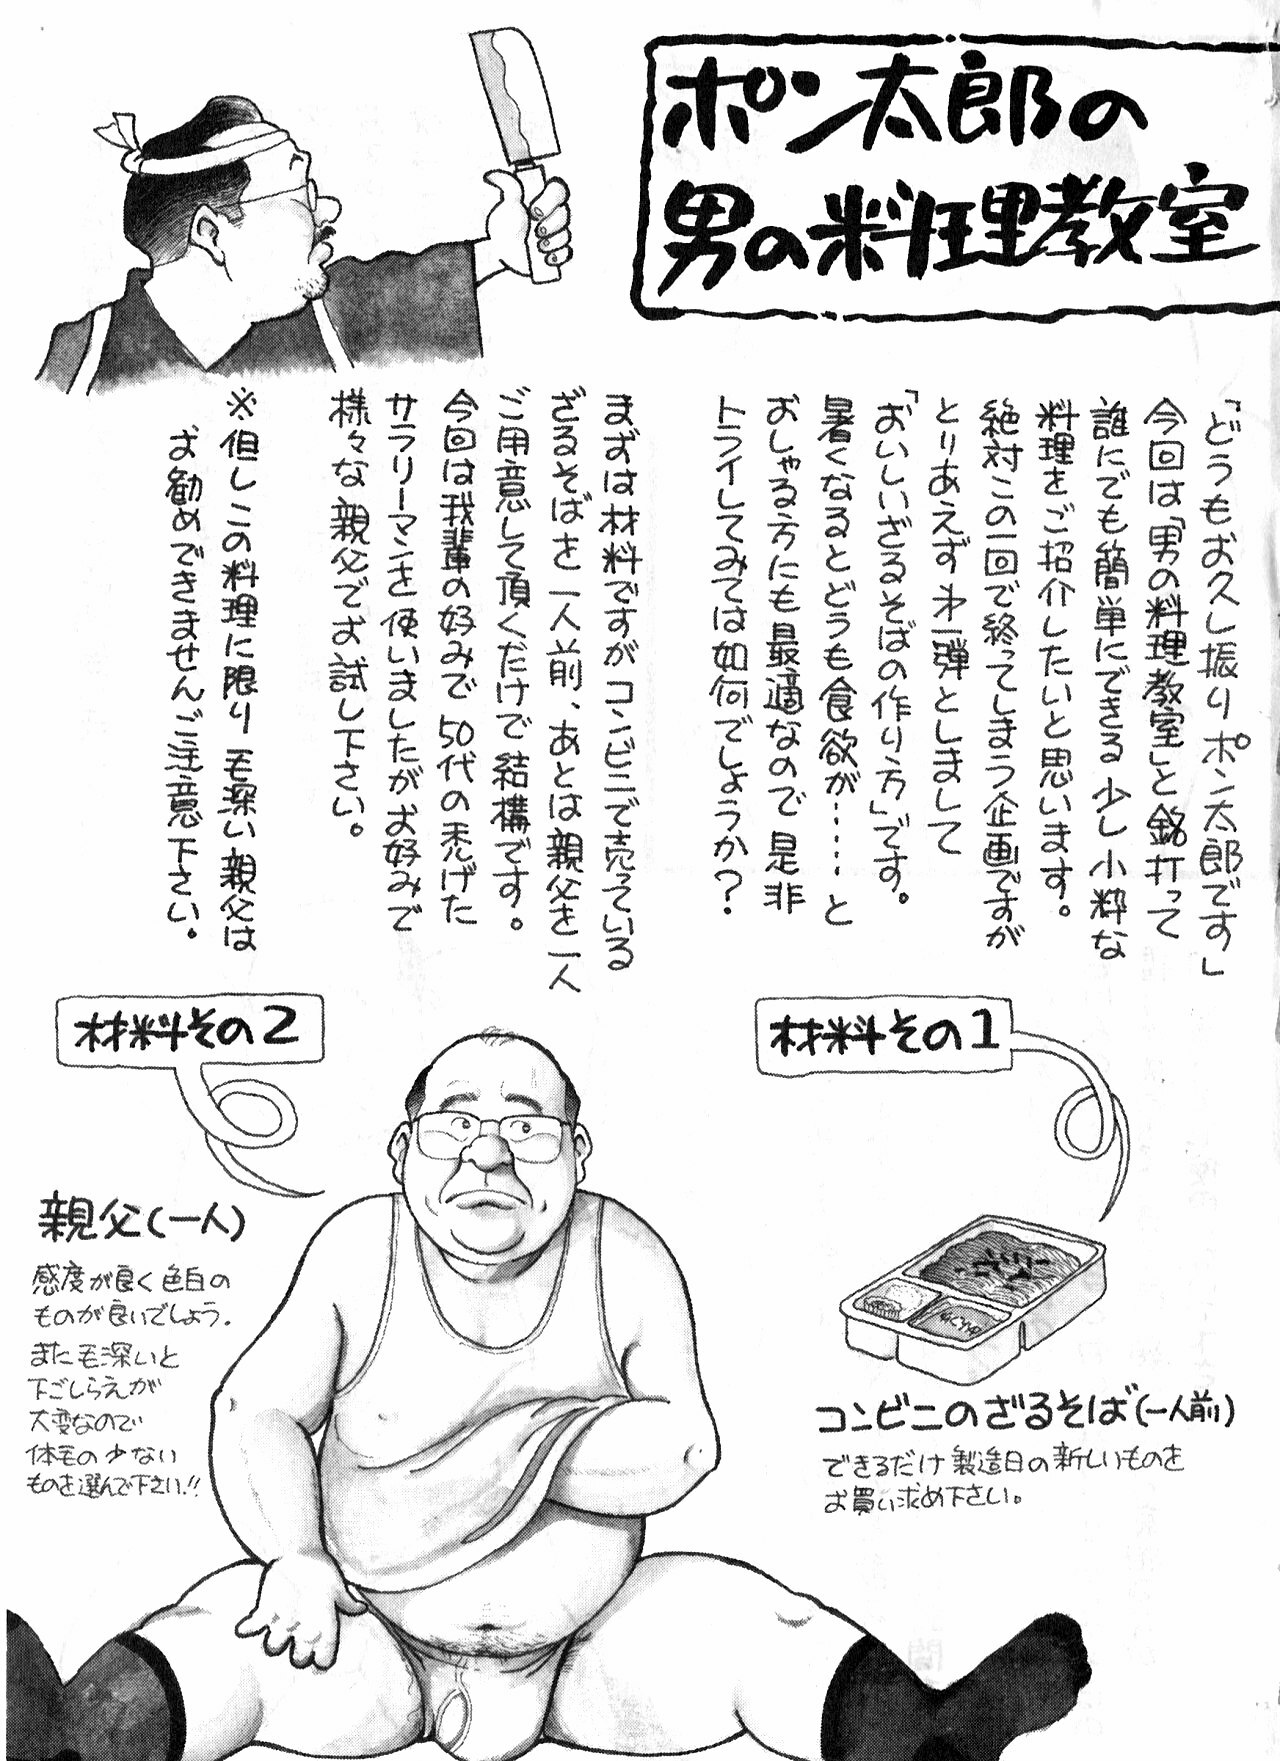 ポン太郎の
男の料理教室
「どうもお久し振りポン太郎です」
今回は「男の料理教室」と銘打って
誰にでも簡単にできる少し小粋な
料理をご紹介したいと思います。
絶対この一回で終ってしまう企画ですが
とりあえず第一弾としまして
「おいしいざるそばの作り方」です。
暑くなるとどうも食欲が……と
おしゃる方にも最適なので是非
トライしてみては如何でしょうか?
まずは材料ですがコンビニで売っている
ざるそばを一人前、あとは親父を一人
ご用意して頂くだけで結構です。
今回は我輩の好みで50代の禿げた
サラリーマンを使いましたがお好みで
様々な親父でお試し下さい。
※但しこの料理に限り毛深い親父は
お勧めできませんご注意下さい。
材料その1
コンビニのざるそば(一人前)
できるだけ製造日の新しいものを
お買い求め下さい。
材料その2
親父(一人)
感度が良く色白の
ものが良いでしょう。
また毛深いと
下ごしらえが
大変なので
体毛の少ない
ものを選んで下さい!!